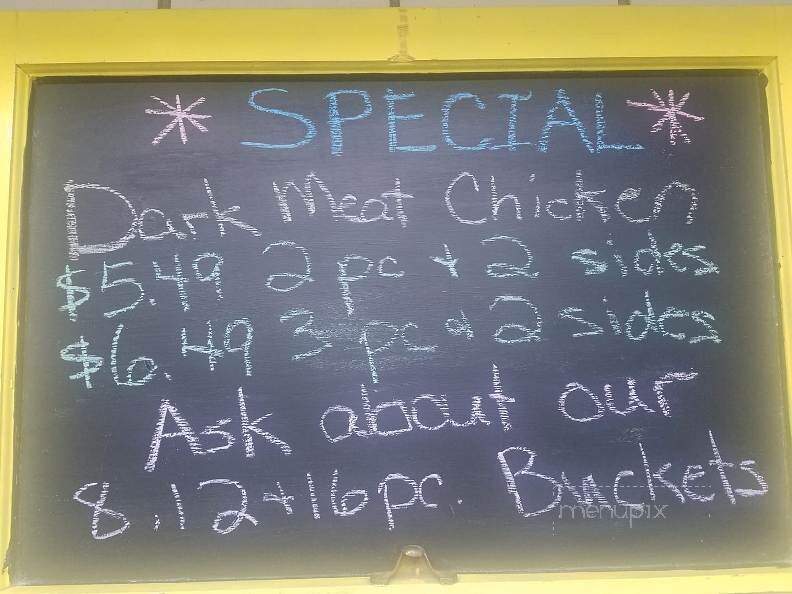 * SPECIAL *
Dark Meat Chicken
$5.49 2 pc + 2 sides
$6.49 3 pc + 2 sides
Ask about our
8.12 + 16 pc. Buckets
menupix